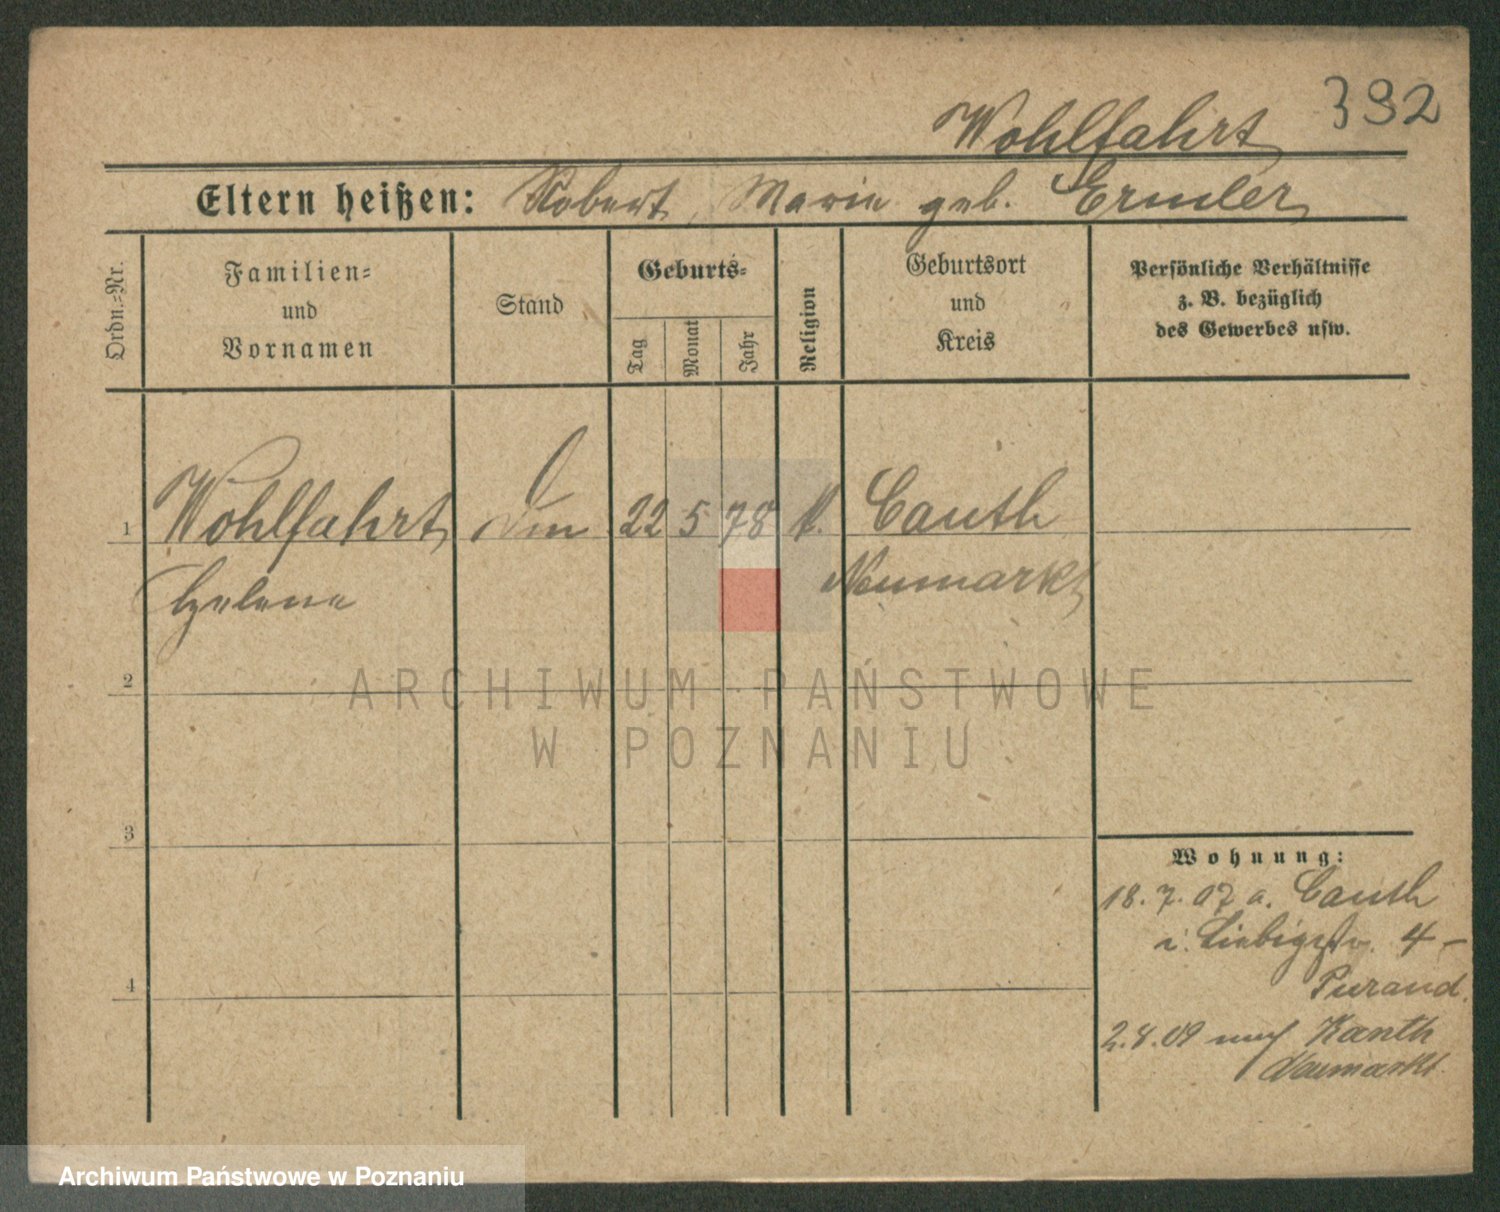 392
Wohlfahrt
Eltern heißen: Robert, Marie geb. Ermler
Ordn.=Nr.
Familien=
und
Vornamen
Stand
Geburts=
Tag
Monat
Jahr
Religion
Geburtsort
und
Kreis
Persönliche Verhältnisse
z. B. bezüglich
des Gewerbes usw.
1 Wohlfahrt 22 5 78 Canth
Helene Neumarkt
2
ARCHIWUM PAŃSTWOWE
W POZNANIU
3
4
Wohnung:
18. 7. 07 a. Canth
i. Liebigstr. 4 –
Purand.
2.8.09 nach Kanth
Neumarkt.
Archiwum Państwowe w Poznaniu